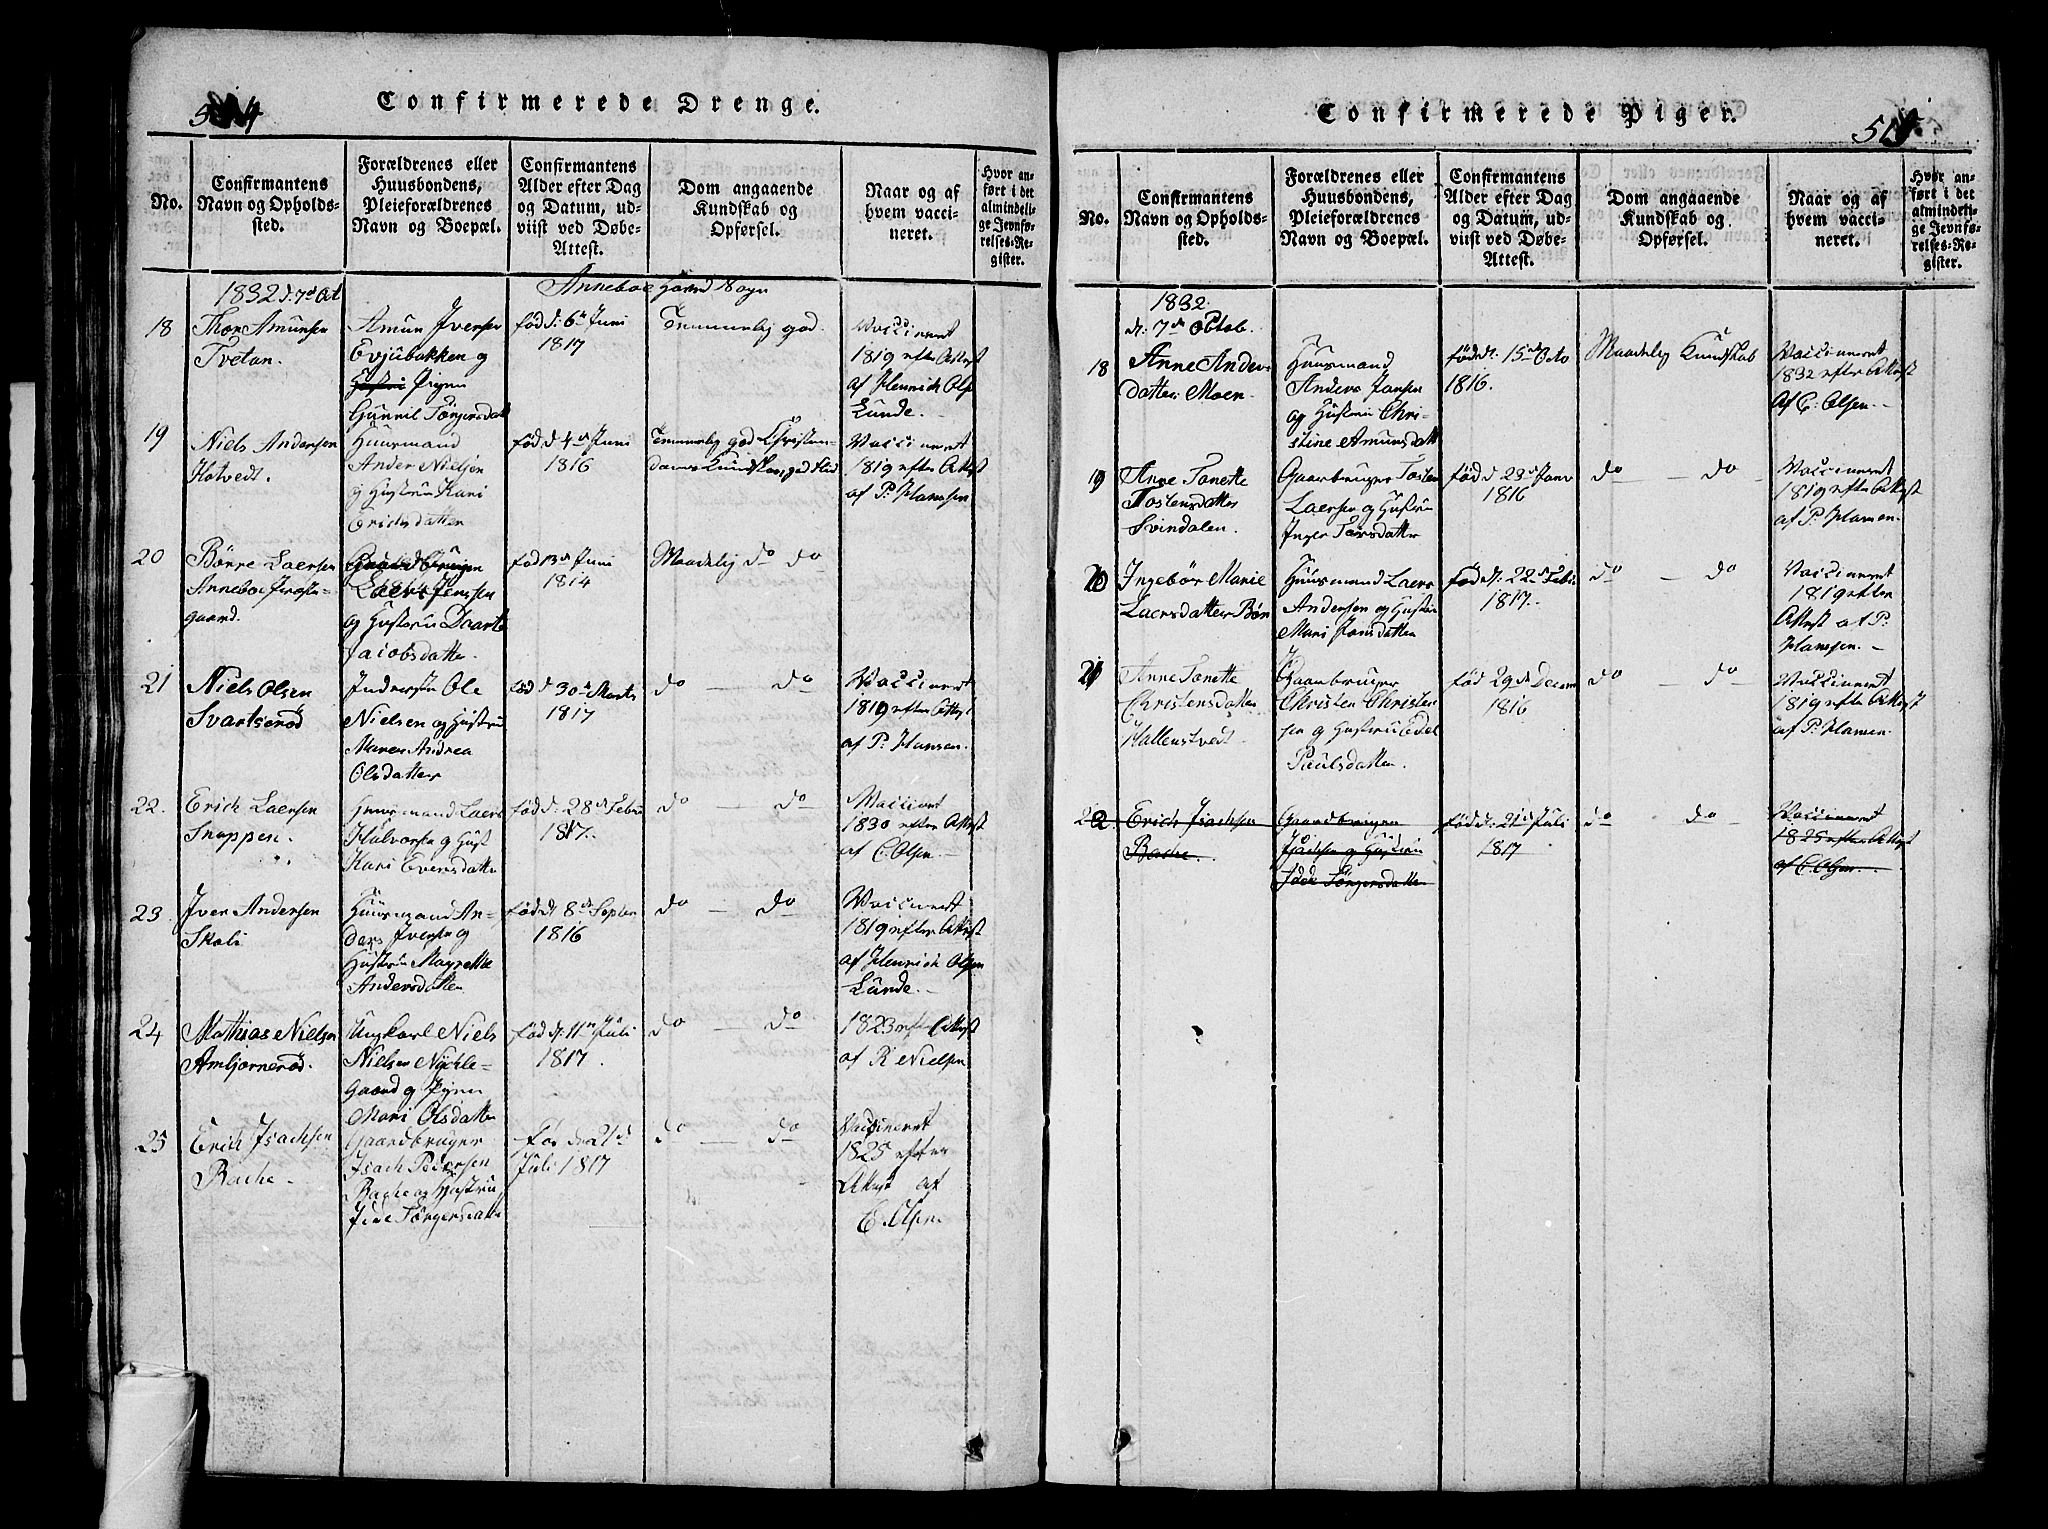 Confirmerede Drenge.
No.
Confirmantens
Navn og Opholds-
sted.
Forældrenes eller
Huusbondens,
Pleieforældrenes
Navn og Boepæl.
Confirmantens
Alder efter Dag
og Datum, ud-
viist ved Døbe-
Attest.
Dom angaaende
Kundskab og
Opførsel.
Naar og af
hvem vacci-
neret.
Hvor an-
ført i det
almindeli-
ge Jevnfø-
relses-Re-
gister.
Anneboe Hoved Sogn
18
Thor Amunsen
Tvetan.
Amun Iversen
Evjubakken og
Pigen
Gunnil Törgersdatt
fød d: 6te Juni
1817
Temmelig god.
Vaccineret
1819 efter Attest
af Henrich Olsen
Lunde.
19
Niels Andersen
Hotvedt.
Huusmand
Ander Nielsen
og Hustrue Kari
Erichsdatter
fød d 4de Juni
1816
Temmelig god Christen-
doms Kundskab, god Flid
Vaccineret
1819 efter Attest
af P: Hansen
20
Börre Laersen
Anneboe Præste-
gaard.
Laers Jenssen
og Hustrue Daarte
Jacobsdatter
fød 13de Juni
1814
Maadelig do do
21
Niels Olsen
Svartserød
Inderste Ole
Nielsen og Hustrue
Maren Andrea
Olsdatter
fød d 30te Marts
1817
do — do
Vaccineret
1819 efter Attest
af P: Hansen.
22.
Erich Laersen
Snappen.
Huusmand Laers
Halvorsen og Hust
Kari Evensdatter
fød d: 28de Febru
1817.
do — do
Vaccineret
1830 efter Attest
af C. Olsen
23.
Iver Andersen
Skali
Huusmand An-
ders Iversen og
Hustrue Mayrethe
Andersdatter
fød d: 8de Septem
1816
do — do
Vaccineret
1819 efter Attest
af Henrich Olsen
Lunde.
24
Mathias Nielsen
Ambjørnerød.
Ungkarl Niels
Nielsen Nychle-
Gaard og Pigen
Mari Olsdatter
fød d: 11te Juli
1817.
do — do
1823 efter Attest
af R Nielsen
25
Erich Isachsen
Bache
Gaardbruger
Isach Pedersen
Bache og Hustrue
Idde Törgersdatter
fød den 21de
Juli 1817
do — do
Vaccineret
1825 efter
Attest af
C. Olsen.
Confirmerede Piger.
No.
Confirmantens
Navn og Opholds-
sted.
Forældrenes eller
Huusbondens,
Pleieforældrenes
Navn og Boepæl.
Confirmantens
Alder efter Dag
og Datum, ud-
viist ved Døbe-
Attest.
Dom angaaende
Kundskab og
Opførsel.
Naar og af
hvem vacci-
neret.
Hvor an-
ført i det
almindeli-
ge Jevnfø-
relses-Re-
gister.
1832.
d: 7de Octob.
18
Anne Anders
datter Moen.
Huusmand
Anders Jansen
og Hustrue Chri-
stine Amunsdatt
fød d: 15de Octo
1816.
Maadelig Kundskab
Vaccineret
1832 efter Attest
af C: Olsen.
19
Anne Tonette
Tostensdatter
Svindalen.
Gaardbruger Tosten
Laersen og Hustrue
Inger Torsdatter
fød d 23de Janv
1816
do — do
Vaccineret
1819 efter Attest
af P: Hansen.
20
Ingebör Marie
Laersdatter Bön
Huusmand Laers
Andersen og Hustrue
Mari Jansdatter
fød d: 22de Febru
1817.
do — do
Vaccineret
1819 efter
Attest af P:
Hanssen.
21
Anne Tonette
Christensdatter
Hallenstvedt
Gaardbruger
Christen Christen
sen og Hustrue Edel
Paulsdatter.
fød 29de Decem
1816
do — do
Vaccineret
1819 efter Attest
af P: Hansen
22.
Erich Isachsen
Bache.
Gaardbrugen
Isachsen og Hustrue
Idde Törgersdatter
fød d: 21de Juli
1817
do do
Vaccineret
1825 efter Attest
af C. Olsen.